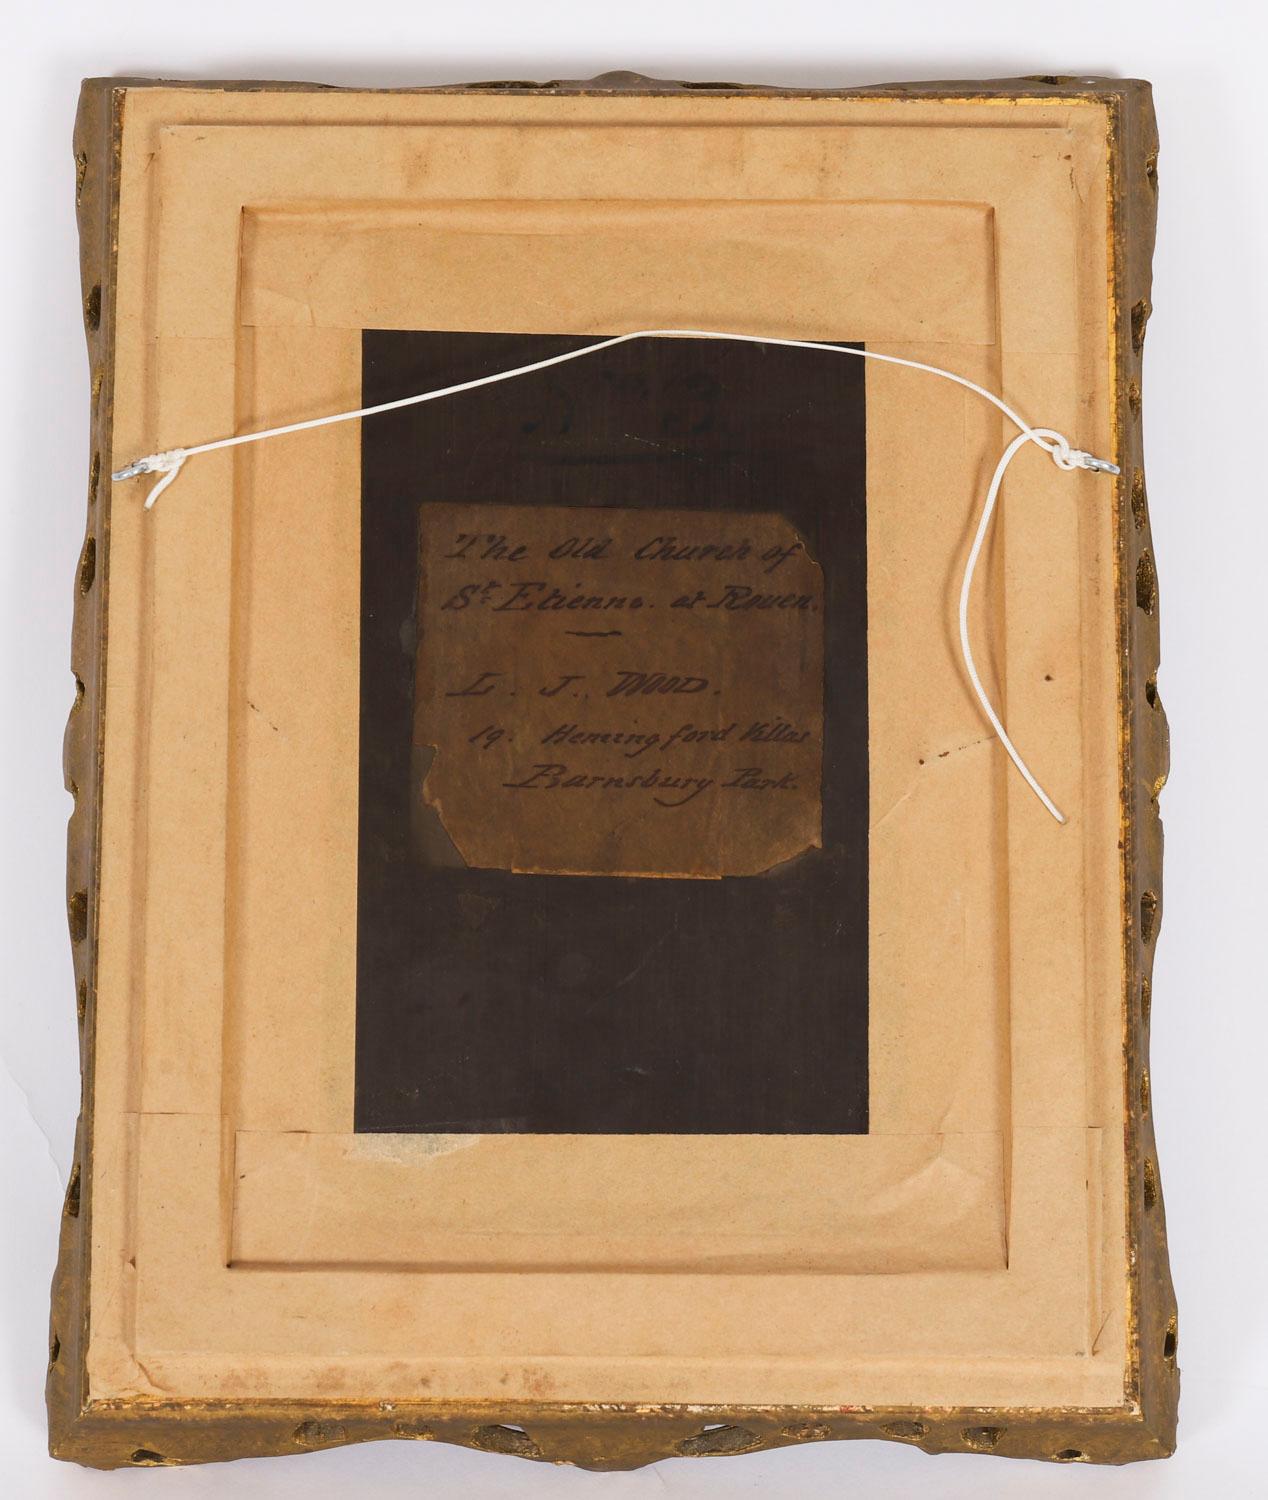 The Old Church of
St Etienne. at Rouen.
L. J. WOOD.
19. Hemingford Villas
Barnsbury Park.